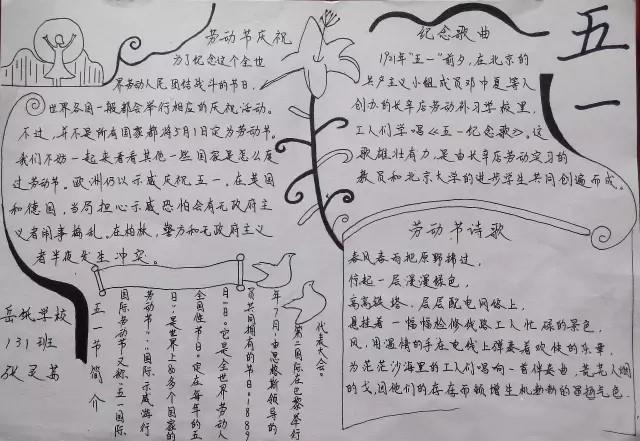 五一
劳动节庆祝
为了纪念这个全世
界劳动人民团结战斗的节日,
世界各国一般都会举行相应的庆祝活动。
不过,并不是所有国家都将5月1日定为劳动节。
我们不妨一起来看看其他一些国家是怎么度
过劳动节。欧洲仍以示威庆祝五一。在英国
和德国,当局担心示威恐怕会有无政府主
义者闹事捣乱。在柏林,警方和无政府主义
者半夜发生冲突。
纪念歌曲
1921年"五一"前夕,在北京的
共产主义小组成员邓中夏等人
创办的长辛店劳动补习学校里,
工人们学唱《五一纪念歌》。这
歌雄壮有力,是由长辛店劳动实习的
教员和北京大学的进步学生共同创编而成。
劳动节诗歌
春风春雨把原野拂过,
信起一层漫漫绿色,
高高铁塔、层层配电网络上,
悬挂着一幅幅检修线路工人忙碌的景色,
风,用温情的手在电线上弹奏着欢快的乐章,
为茫茫沙海里的工人们唱响一首伴奏曲,荒芜人烟
的戈,因他们的存在而顿增生机勃勃的
五一节简介
国际劳动节又称"五一国际
劳动节"、"国际示威游行
日",是世界上80多个国家的
全国性节日。定在每年的五
月一日。它是全世界劳动人
民共同拥有的节日。1889
年7月,由恩格斯领导的
第二国际在巴黎举行
代表大会。
学校
131班